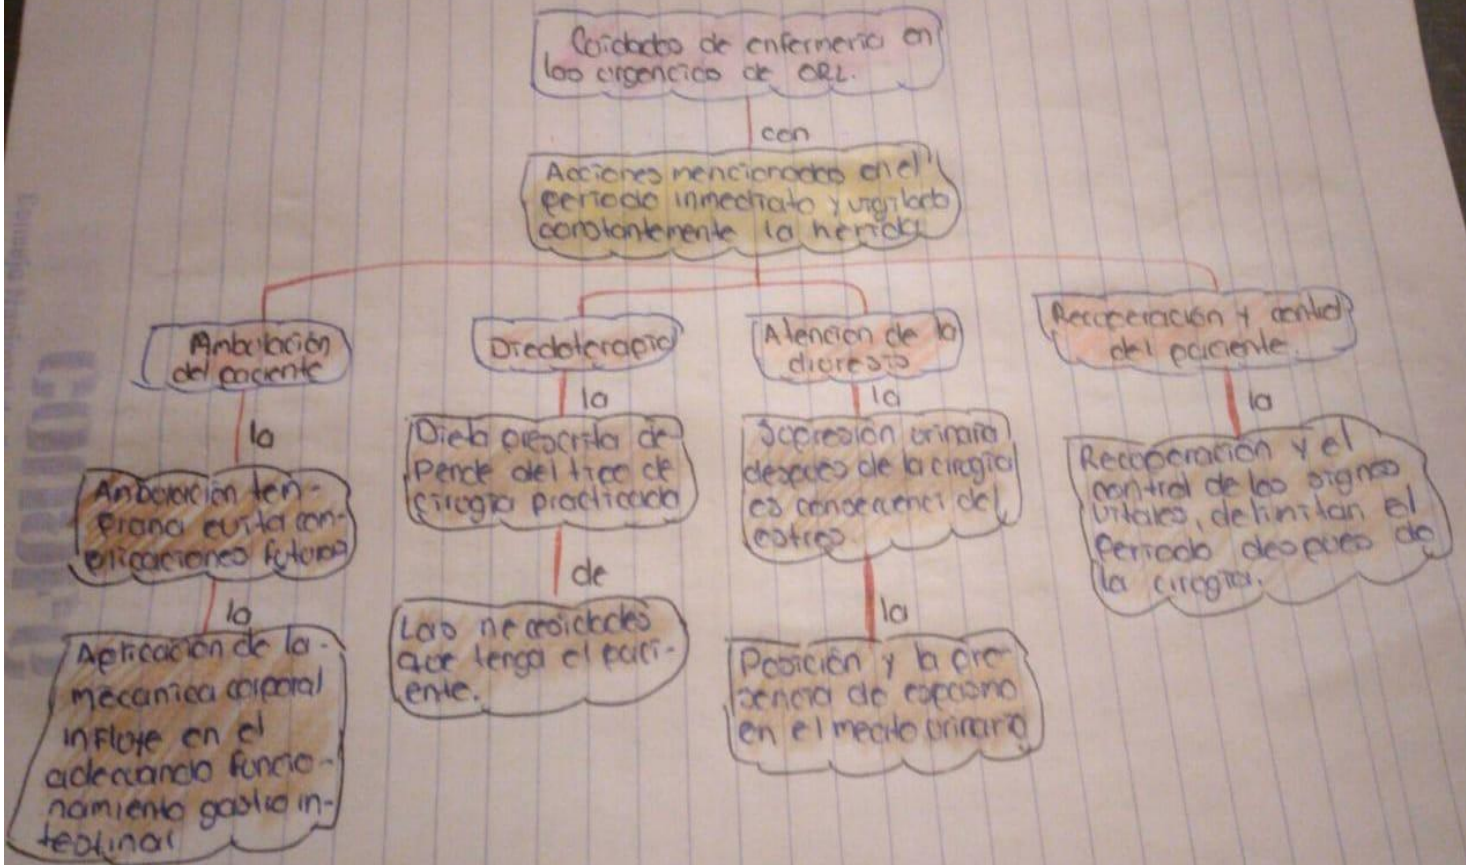 Coidados de enfermeria en
las urgencias de ORL.
con
Acciones mencionados en el
periodo inmediato y vigilado
constantemente la herida
Ambulación
del paciente
la
Ambulación tem-
prana evita com-
plicaciones futuras
la
Aplicación de la
mecanica corporal
influye en el
adecuando funcio-
namiento gastro in-
testinal
Diedoterapia
la
Dieta prescrita de-
pende del tipo de
cirugia practicada
de
Las necesidades
que tenga el paci-
ente.
Atención de la
diuresis
la
Supresión urinaria
despues de la cirugia
es consecuenci del
estres.
la
Posición y la pre-
sencia de espasmo
en el meato urinario
Recuperación y control
del paciente.
la
Recuperación y el
control de los signos
vitales, delimitan el
periodo despues de
la cirugia.